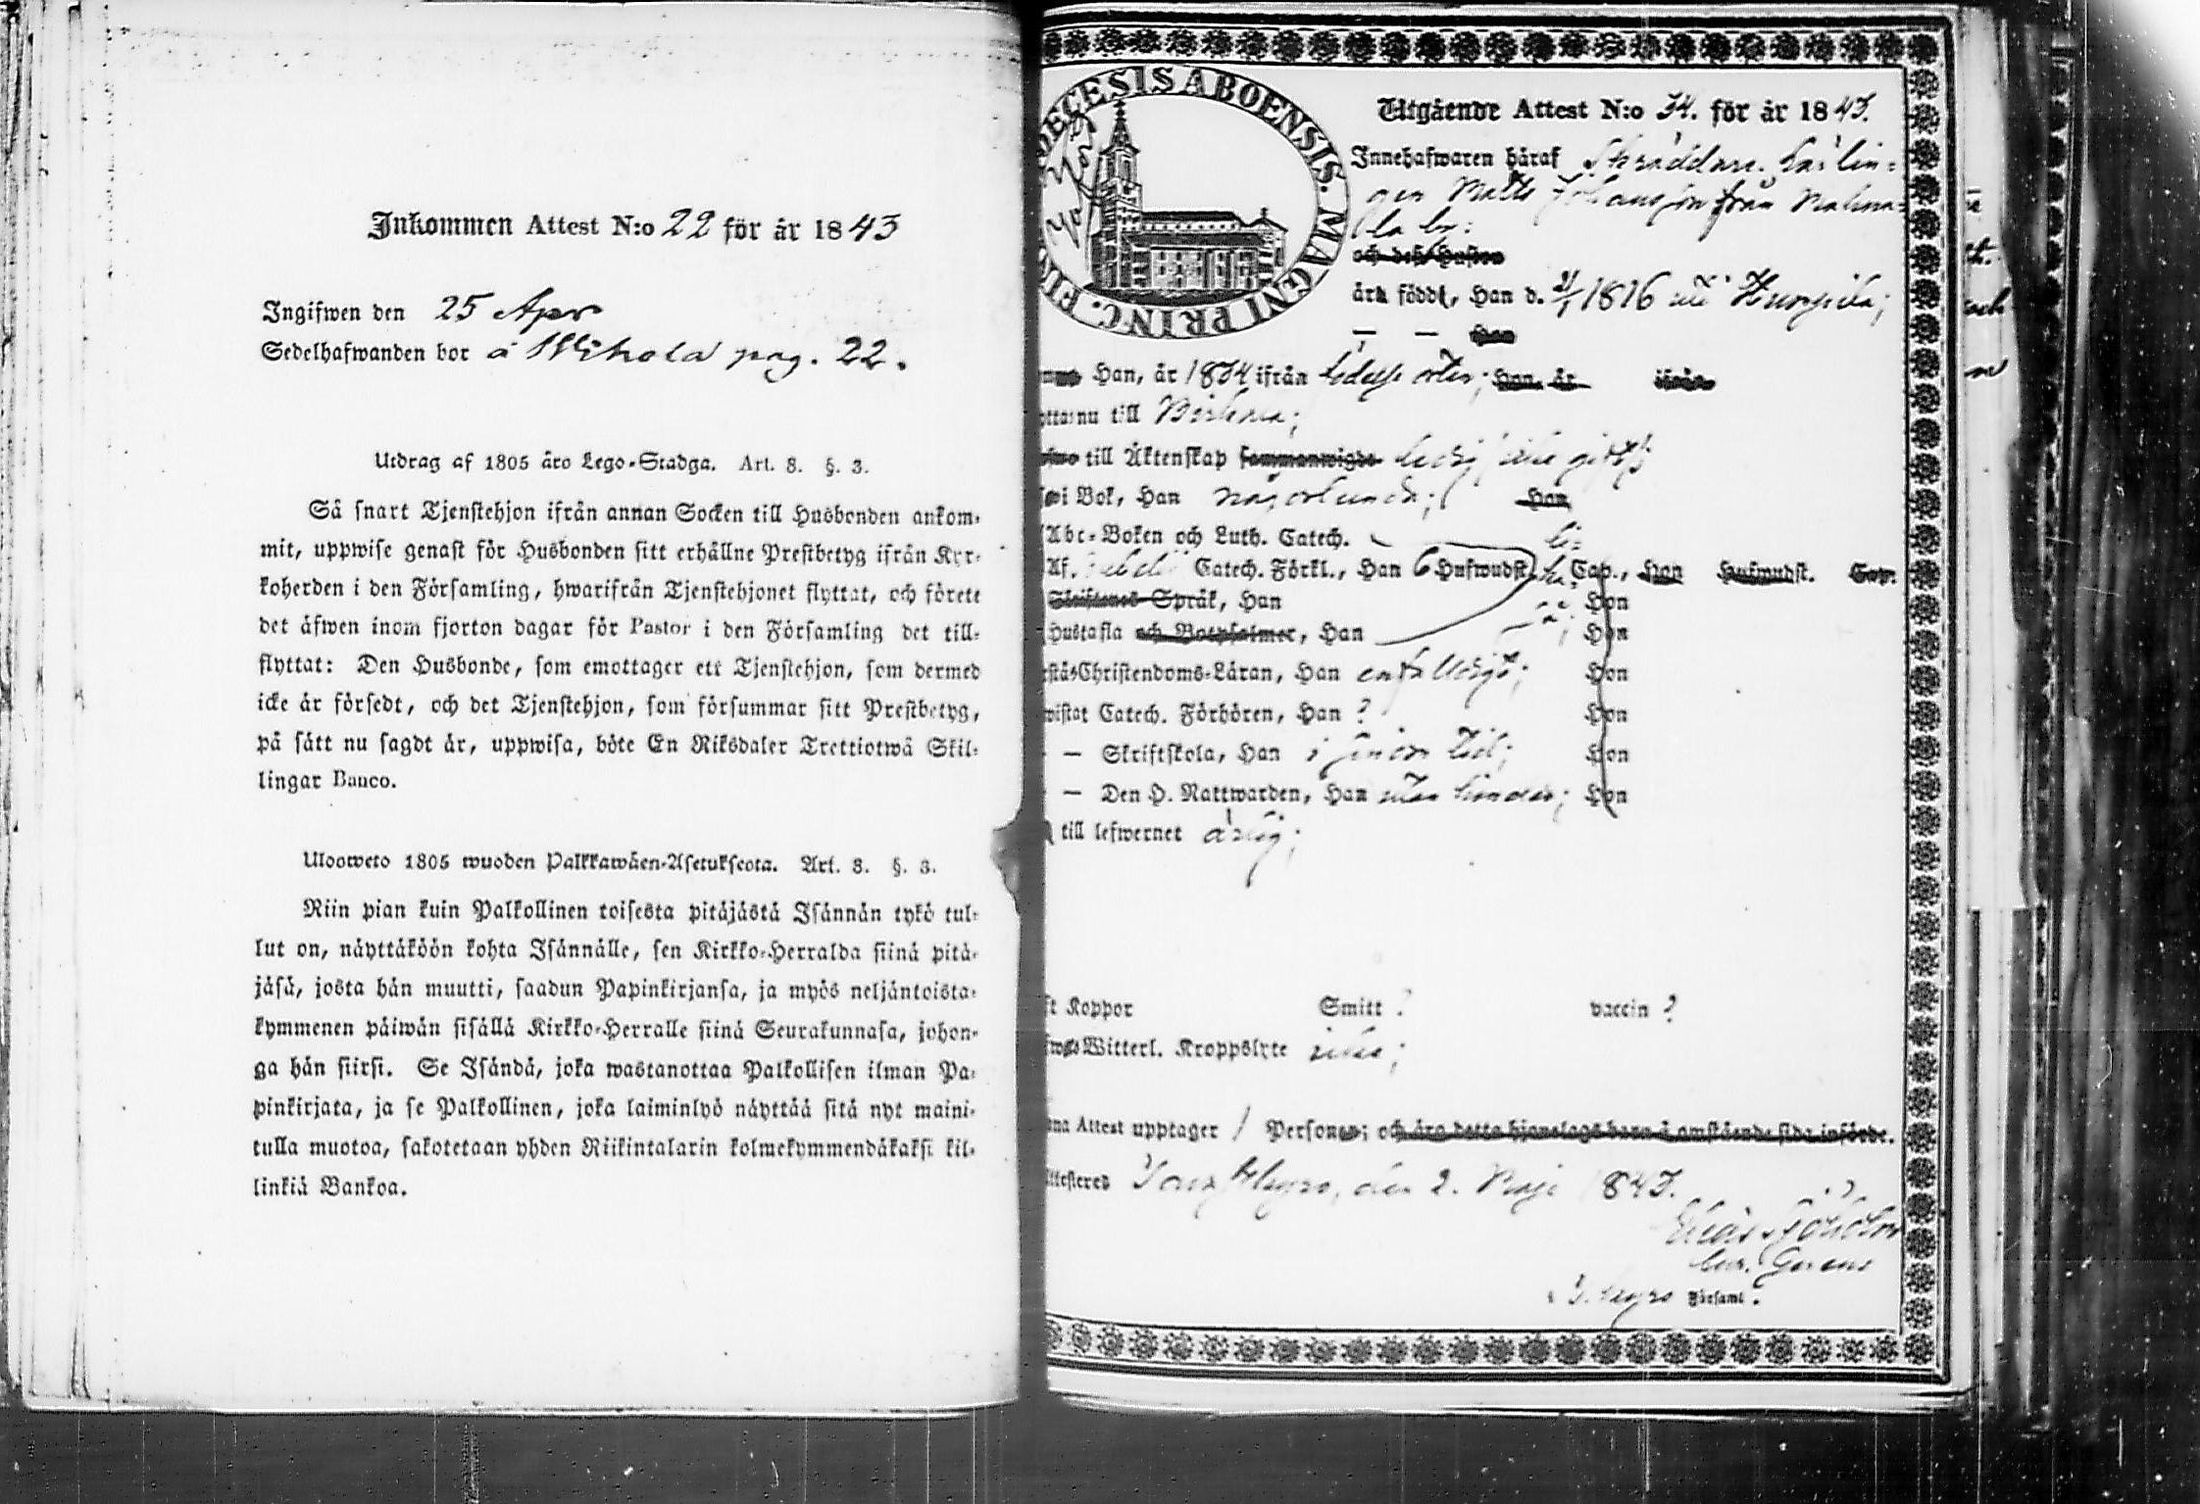 Inkommen Attest N:o 22 för år 1843
Ingifwen den 25 Apr
Sedelhafwanden bor å Wihola pag. 22.
Utdrag af 1805 års Lego-Stadga. Art. 8. §. 3.
Så snart Tjenstehjon ifrån annan Socken till Husbonden ankom-
mit, uppwise genast för Husbonden sitt erhållne Prestbetyg ifrån Kyr-
koherden i den Församling, hwarifrån Tjenstehjonet flyttat, och förete
det äfwen inom fjorton dagar för Pastor i den Församling det till-
flyttat: Den Husbonde, som emottager ett Tjenstehjon, som dermed
icke är försedt, och det Tjenstehjon, som försummar sitt Prestbetyg,
på sätt nu sagdt är, uppwisa, böte En Riksdaler Trettiotwå Skil-
lingar Banco.
Ulosweto 1805 wuoden Palkkawäen-Asetuksesta. Art. 8. §. 3.
Niin pian kuin Palkollinen toisesta pitäjästä Isännän tykö tul-
lut on, näyttäköön kohta Isännälle, sen Kirkko-Herralda siinä pitä-
jäsä, josta hän muutti, saadun Papinkirjansa, ja myös neljäntoista-
kymmenen päiwän sisällä Kirkko-Herralle siinä Seurakunnasa, johon-
ga hän siirsi. Se Isändä, joka wastanottaa Palkollisen ilman Pa-
pinkirjata, ja se Palkollinen, joka laiminlyö näyttää sitä nyt maini-
tulla muotoa, sakotetaan yhden Riikintalarin kolmekymmendäkaksi kil-
linkiä Bankoa.
DECESIS ABOENSIS. MAGNI PRINC. FI
Utgående Attest N:o 34. för år 1843.
Innehafwaren häraf Skräddare Lärlin-
gen Matts Johansson från
la by:
och dess Hustru
äro född, Han d. 1816 uti Humpila;
— — Hon
Han, år 1834 ifrån födelse orten; Hon, år ifrån
nu till
till Äktenskap sammanwigde ledig icke gift;
i Bok, Han någorlunda; Hon
Abc-Boken och Luth. Catech.
Af. Catech. Förkl., Han 6 Hufwudst. Cap., Hon Hufwudst. Cap.
Skriftenes Språk, Han Hon
Hustafla och Botpsalmer, Han Hon
Christendoms-Läran, Han enfalldigt; Hon
wistat Catech. Förhören, Han ? Hon
— Skriftskola, Han i sin tid; Hon
— Den H. Nattwarden, Han utan hinder; Hon
till lefwernet ärlig;
Koppor Smitt ? vaccin ?
Witterl. Kroppslyte icke;
na Attest upptager 1 Personer; och äro detta hjonelags barn å omstående sida införde.
ttesteres den 2. Maji 1843.
Församl.